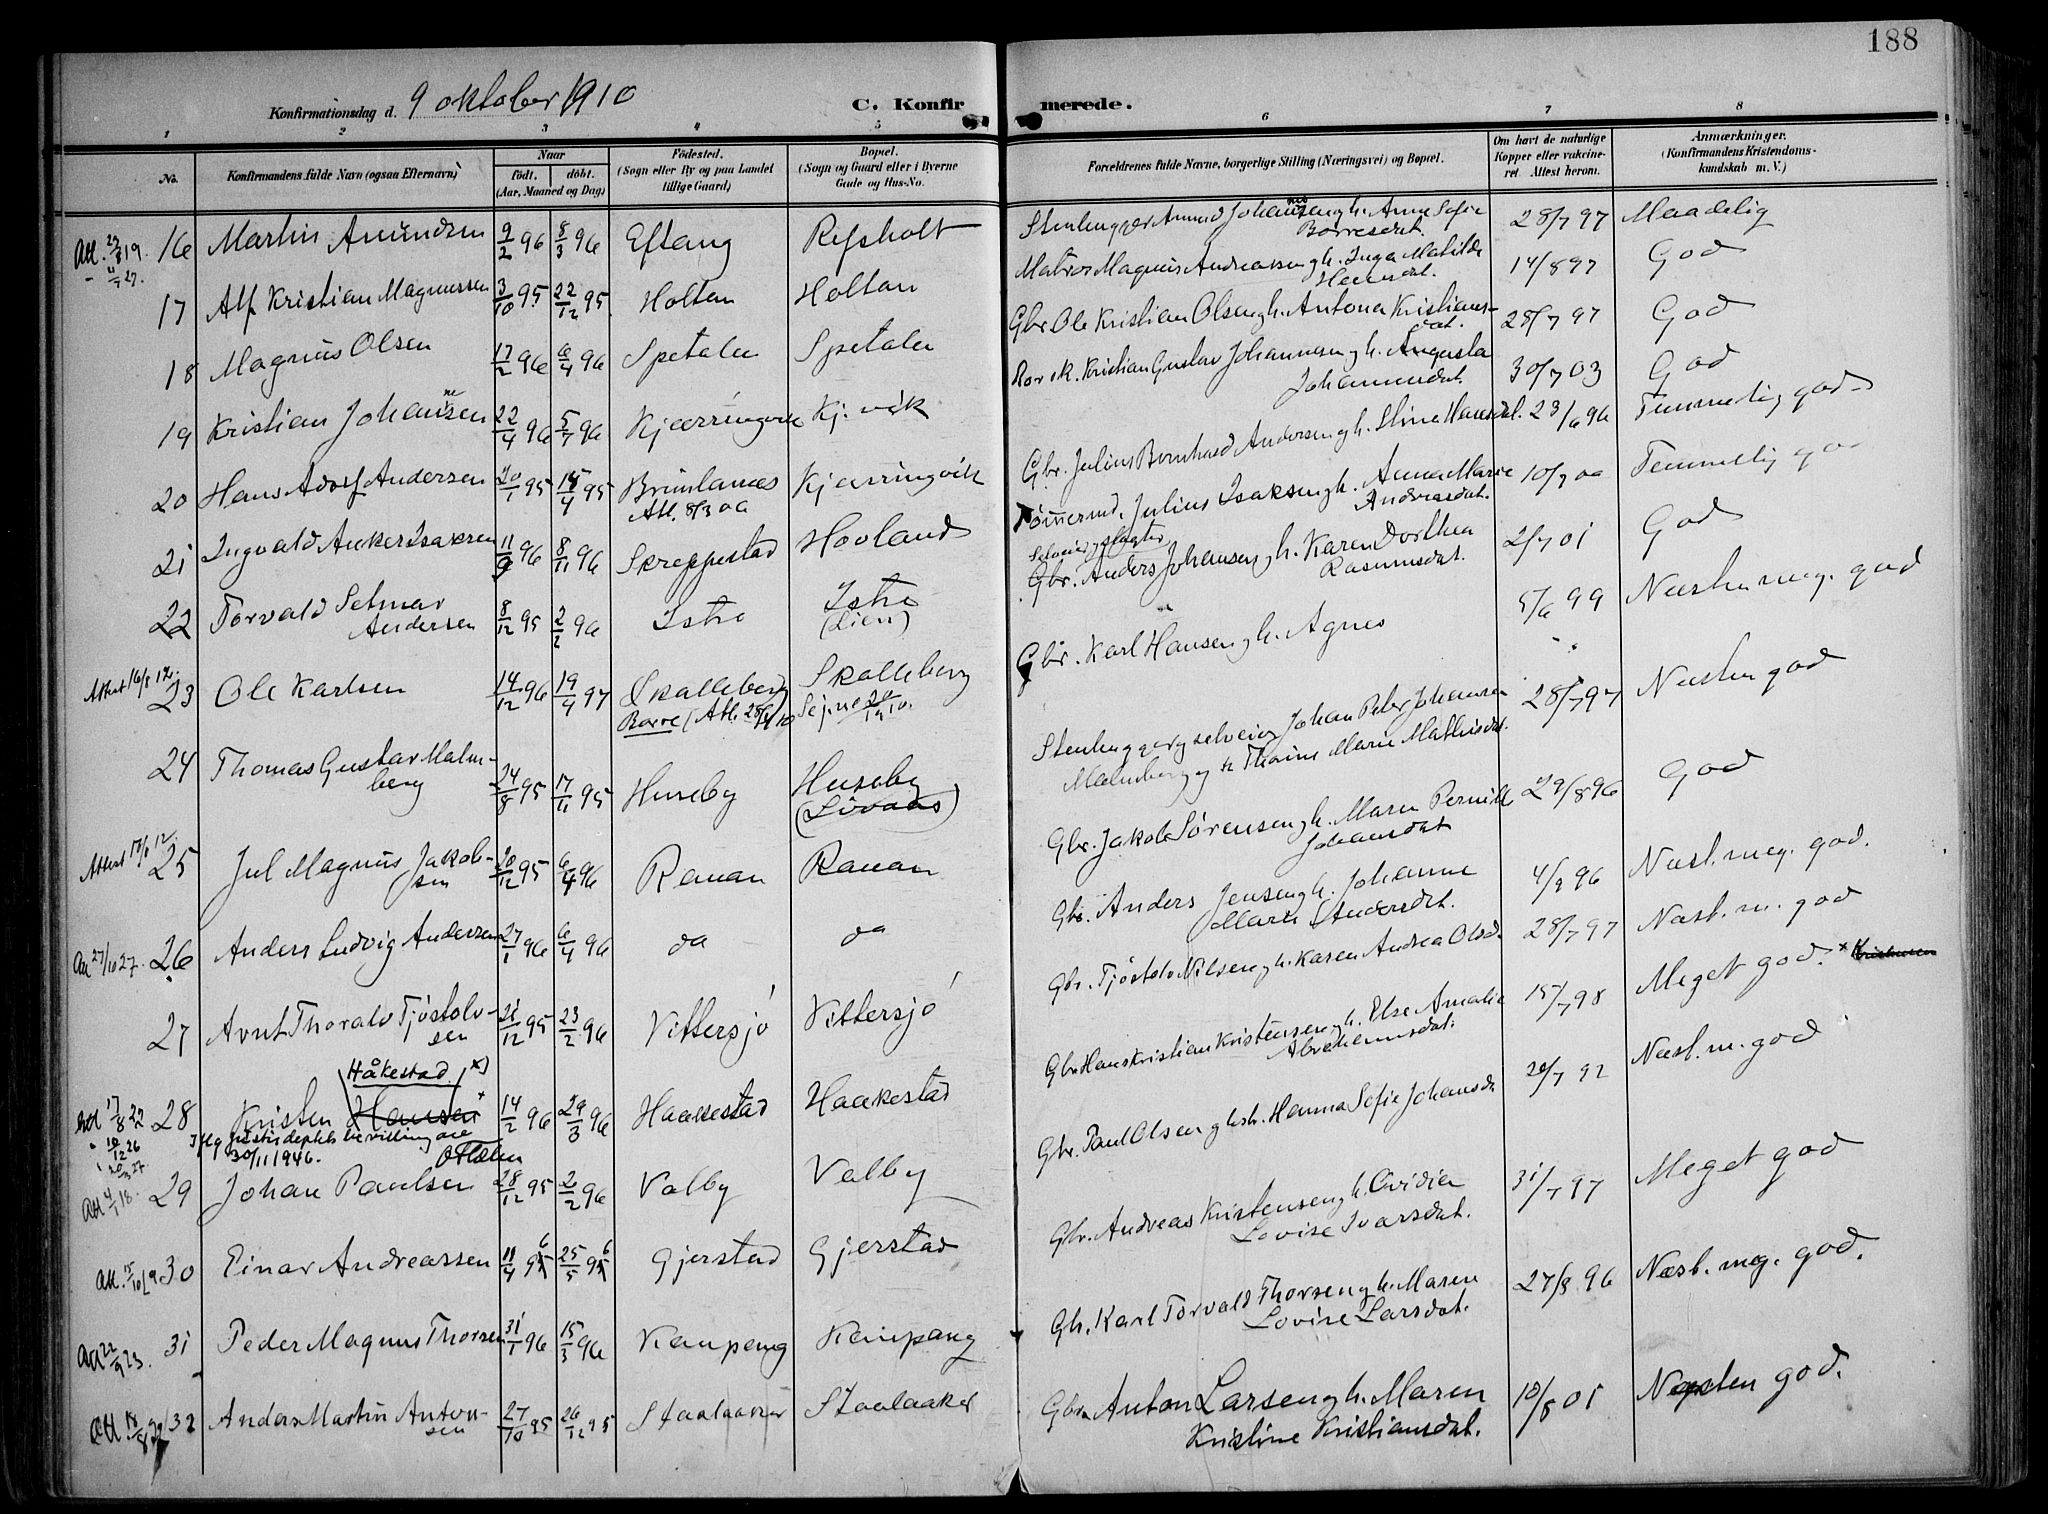 188
Konfirmationsdag d. 9 oktober 1910
C. Konfirmerede.
1 2 3 4 5 6 7 8
No.
Konfirmandens fulde Navn (ogsaa Efternavn)
Naar
födt. döbt.
(Aar, Maaned og Dag)
Födested.
(Sogn eller By og paa Landet
tillige Gaard)
Bopæl.
(Sogn og Gaard eller i Byerne
Gade og Hus-No.
Forældrenes fulde Navne, borgerlige Stilling (Næringsvei) og Bopæl.
Om havt de naturlige
Kopper eller vakcine-
ret. Attest herom.
Anmærkninger.
(Konfirmandens Kristendoms-
kundskab m. V.)
16 Martin Amundsen 9/2 96 8/3 96 Eftang Refsholt Amund Johansen g h. Anne Sofie 28/7 97 Maadelig
Borresdat.
17 Alf Kristian Magnussen 3/10 95 22/12 95 Holtan Holtan Matros Magnus Andreassen g h. Inga Matilde 14/8 97 God
18 Magnus Olsen 17/2 96 6/4 96 Spetalen Spetalen Gbr. Ole Kristian Olsen g h. Antona Kristians- 28/7 97 God
dat.
19 Kristian Johannesen 22/4 96 5/7 96 Kjærringvik Kj. vik Kristian Gustav Johannesen g h. Augusta 30/7 03 God
Johannesdat.
20 Hans Adolf Andersen 20/1 95 15/4 95 Brunlanæs Kjærringvik Gbr. Julius Bernhard Andersen g h. Stine Hansdat. 23/6 96 Temmelig god
Att. 8/3 00
21 Ingvald Anker Isaksen 11/9 96 8/11 96 Skreppestad Hovland Tömmermd. Julius Isaksen g h. Anna Marie 10/9 00 Temmelig god
Andreasdat.
22 Torvald Selmar 8/12 95 2/2 96 Istre Istre Gbr. Anders Johansen g h. Karen Dorthea 2/7 01 God
Andersen (Lien) Rasmusdat.
Attest 16/8 12. 23 Ole Karlsen 14/12 96 19/4 97 Skalleberg Skalleberg Gbr. Karl Hansen g h. Agnes 5/6 99 Næsten meg. god
Borre
24 Thomas Gustav Malm- 24/8 95 17/11 95 Huseby Huseby Stenhugger g selveier Johan Peter Johansen 28/7 97 Næsten god
berg (Lövaas) Malmberg g h Marie Mathisdat.
25 Jul Magnus Jakob- 20/12 95 6/4 96 Rauan Rauan Gbr. Jakob Sörensen g h. Maren Pernille 29/8 96 God
sen Johansdat
An 27/10 27. 26 Anders Ludvig Andersen 27/1 96 6/4 96 do do Gbr. Anders Jensen g h. Johanne 4/9 96 Næst. meg. god.
Marie Andersdat.
27 Arnt Thoralv Tjöstolv- 21/12 95 23/2 96 Vittersjö Vittersjö Gbr. Tjöstolv Nilsen g h. Karen Andrea Olsd. 28/7 97 Næst. m. god
sen
Håkestad. x)
Att 17/8 22 28 Kristen Hansen x 14/2 96 29/3 96 Haakestad Haakestad Gbr. Hans Kristian Kristensen g h. Else Amalie 15/7 98 Meget god. x Kristensen
Abrahamsdat.
10/12 26 Iflg justisdeptets bevilling av
30/11 1946.
Att 4/1 18. 29 Johan Paulsen 28/12 95 2/2 96 Valby Valby Gbr. Paul Olsen g hstr. Hanna Sofie Johansd. 20/7 92 Næst. m. god
Att. 15/10 19 30 Einar Andreassen 11/4 96 25/5 96 Gjerstad Gjerstad Gbr. Andreas Kristensen g h. Ovidia 31/7 97 Meget god
Lovise Ivarsdat.
Att 22/9 23. 31 Peder Magnus Thorsen 31/1 96 15/3 96 Kaupang Kaupang Gbr. Karl Torvald Thorsen g h. Maren 27/8 96 Næst. meg. god.
Lovise Larsdat.
32 Anders Martin Anton- 27/10 95 26/12 95 Staalaaker Staalaaker Gbr. Anton Larsen g h. Maren 10/8 01 Næsten god.
sen Kristine Kristiansdat.